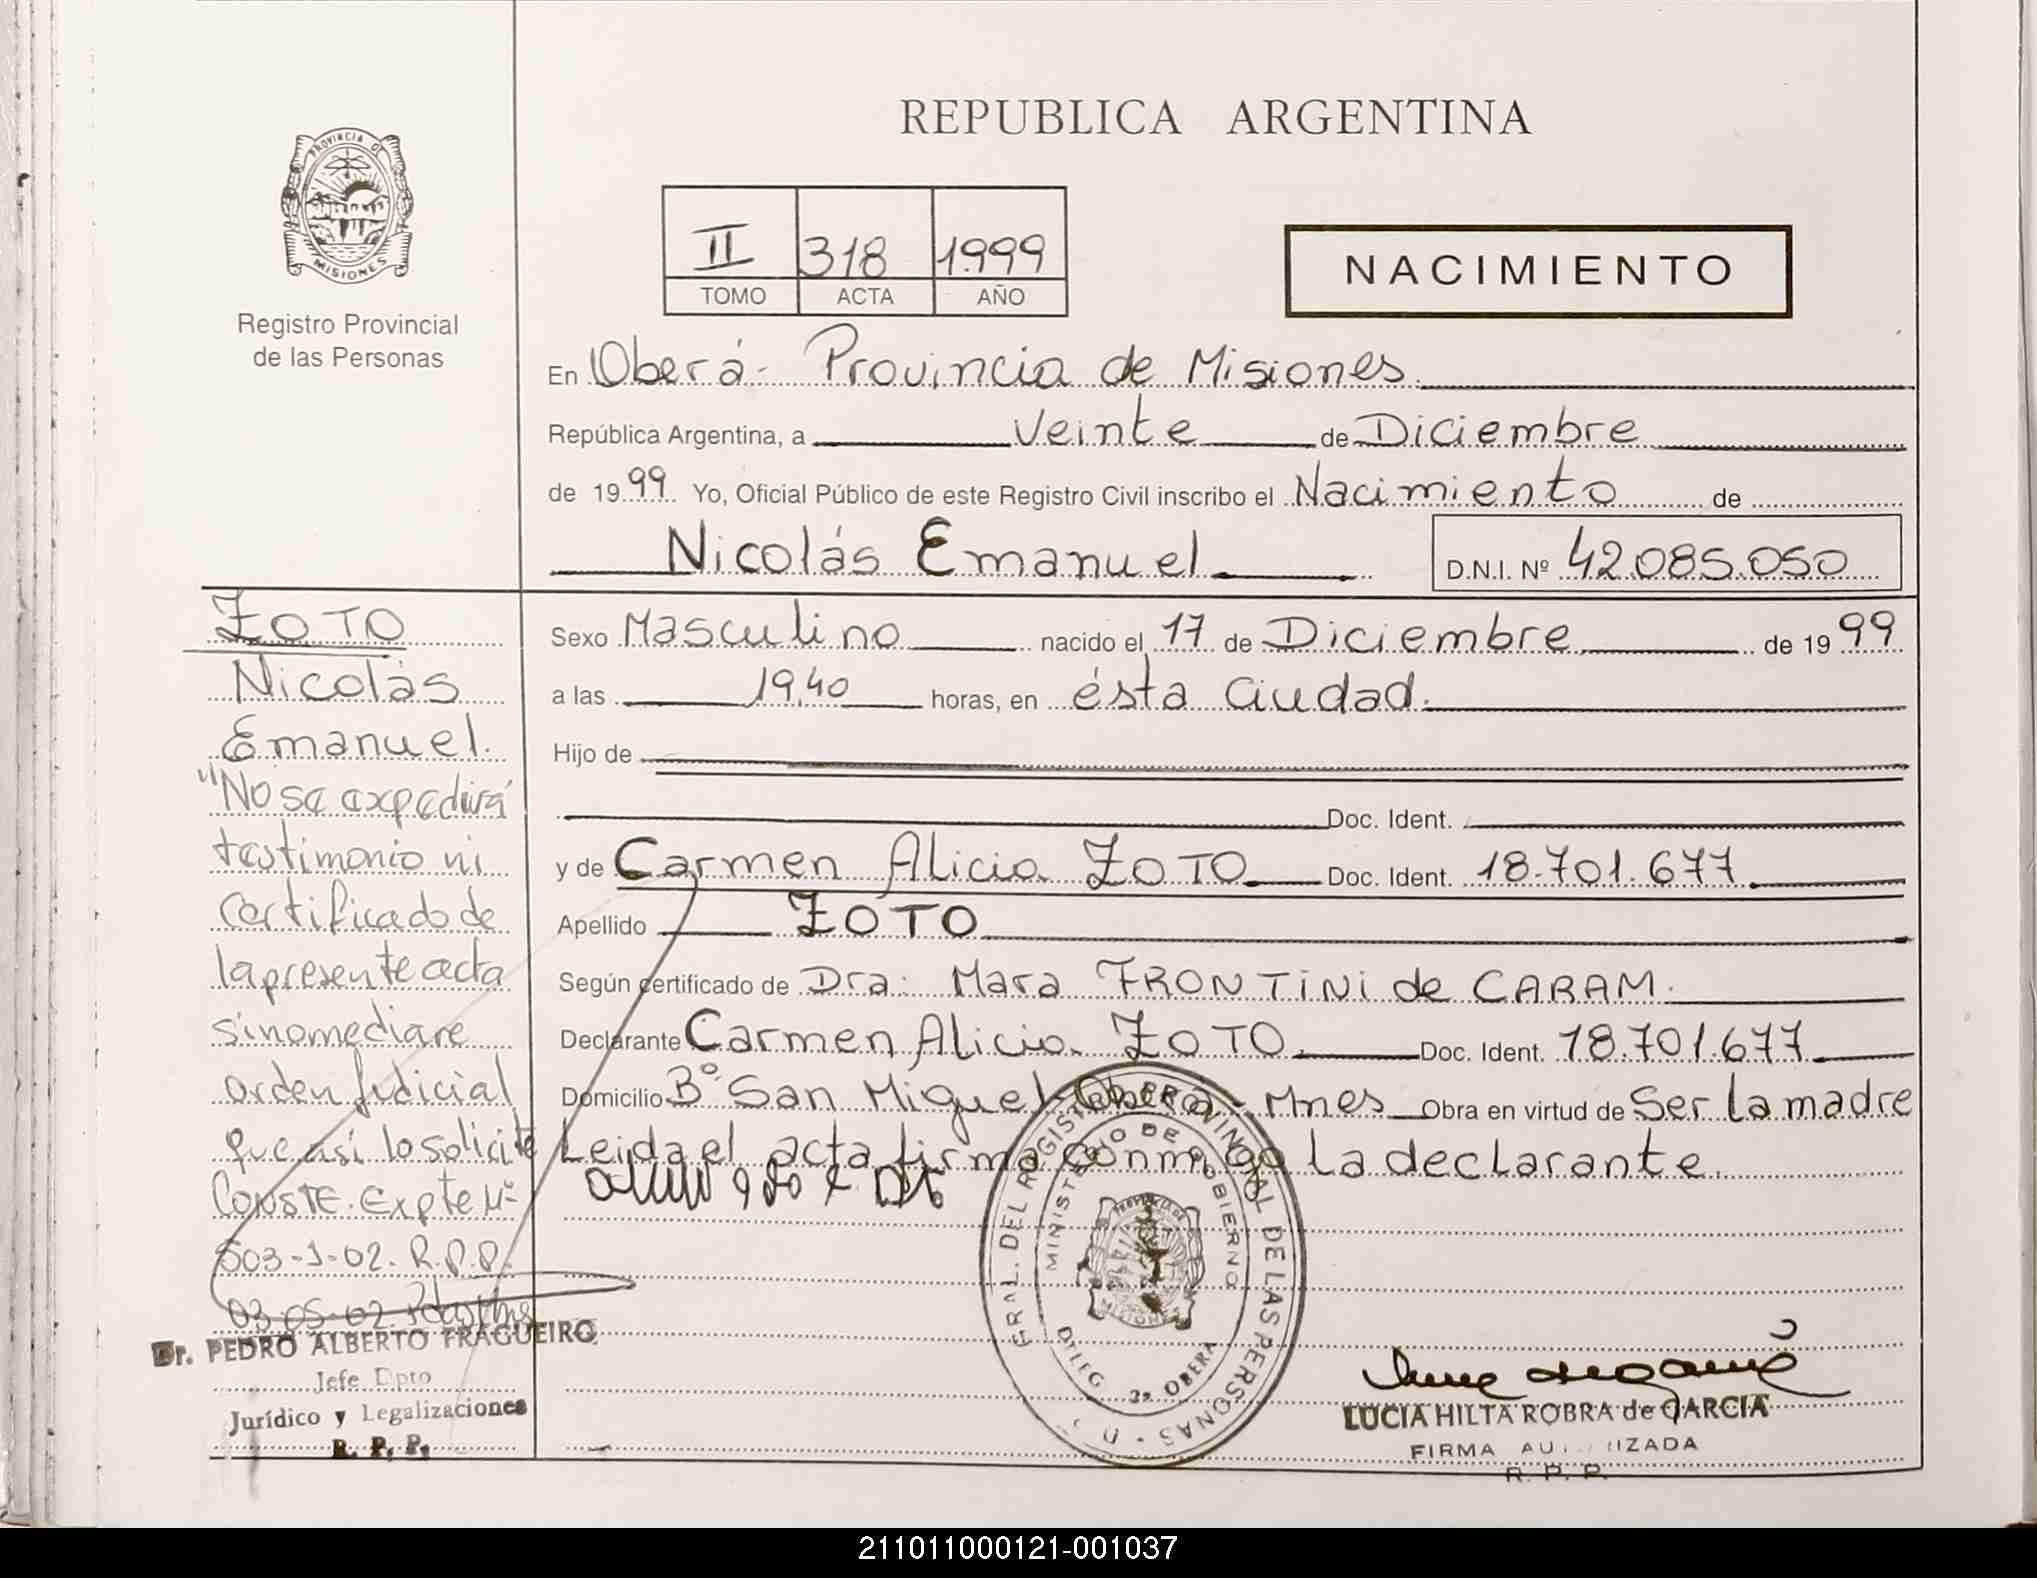 PROVINCIA DE
MISIONES
Registro Provincial
de las Personas
REPUBLICA ARGENTINA
II 318 1999
TOMO ACTA AÑO
NACIMIENTO
En Oberá - Provincia de Misiones
República Argentina, a veinte de Diciembre
de 1999 Yo, Oficial Público de este Registro Civil inscribo el Nacimiento de
Nicolás Emanuel D.N.I. Nº 42.085.050
Sexo Masculino nacido el 17 de Diciembre de 1999
a las 19,40 horas, en ésta Ciudad.
Hijo de
Doc. Ident.
y de Carmen Alicia ZOTO Doc. Ident. 18.701.677
Apellido ZOTO
Según certificado de Dra: Mara FRONTINI de CARAM.
Declarante Carmen Alicia ZOTO Doc. Ident. 18.701.677
Domicilio Bº San Miguel Oberá - Mnes Obra en virtud de Ser la madre
Leida el acta firma conmigo la declarante.
ZOTO
Nicolás
Emanuel.
"No se expedirá
testimonio ni
certificado de
la presente acta
si no mediare
orden Judicial
que así lo solicite
CONSTE. Expte Nº
503-J-02. R.P.P.
03.05-02.
Dr. PEDRO ALBERTO FRAGUEIRO
Jefe Dpto
Jurídico y Legalizaciones
R. P. P.
GRAL. DEL REGISTRO PROVINCIAL DE LAS PERSONAS
MINISTERIO DE GOBIERNO
DELEG. 2a. OBERA
LUCIA HILTA ROBRA de GARCIA
FIRMA AUTORIZADA
R. P. P.
211011000121-001037